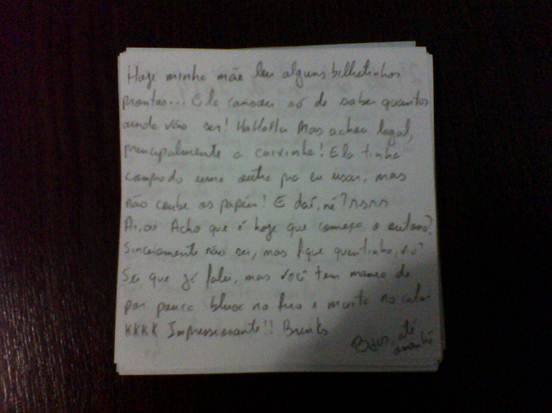 Hoje minha mãe leu alguns bilhetinhos
prontos... Ela cansou só de saber quantos
ainda vão ser! HaHaHa Mas achou legal,
principalmente a caixinha! Ela tinha
comprado uma outra pra eu usar, mas
não coube os papéis! E daí, né? rsrsrs
Ai, ai Acho que é hoje que começa o outono?
Sinceramente não sei, mas fique quentinho, viu?
Sei que já falei, mas você tem mania de
por pouca blusa no frio e muita no calor
KKKK Impressionante!! Brinks
Bjus, até
amanhã